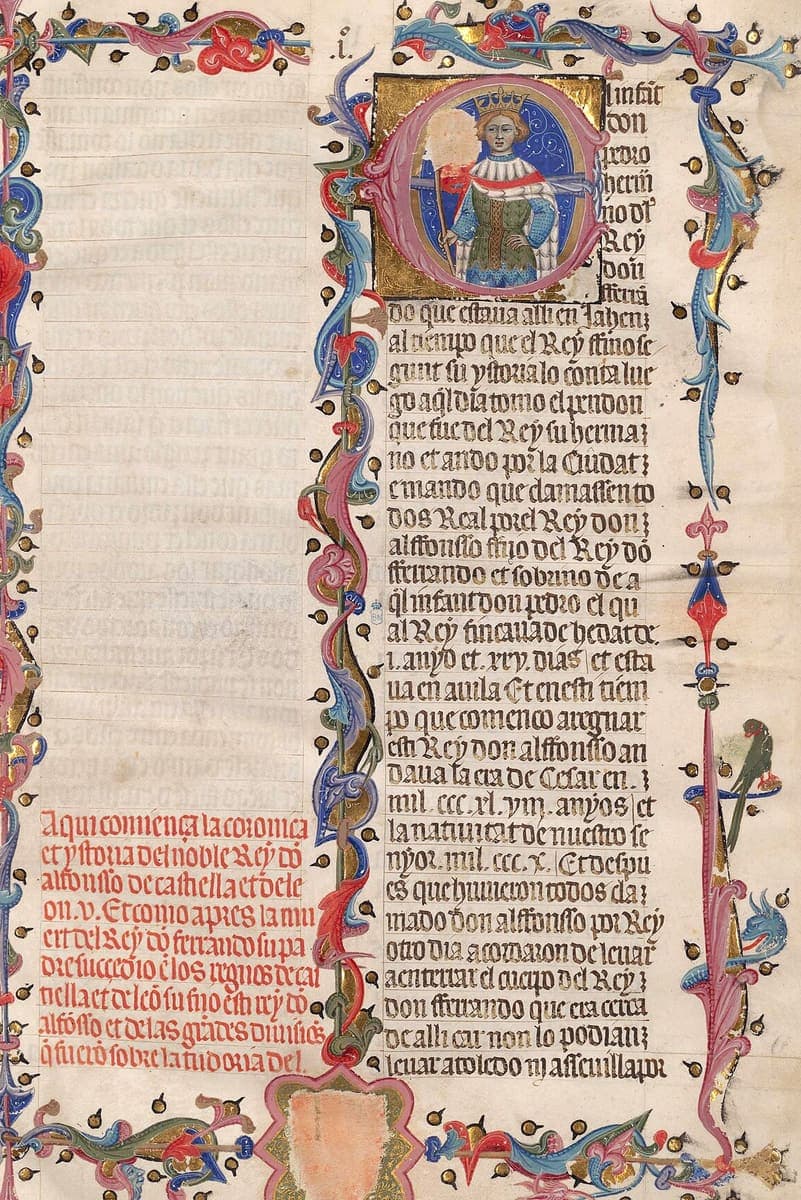 .i.
A qui comiença la coronica
et ystoria del noble Rey dõ
alfonsso de castella et de le
on .v. Et como apres la mu
ert del Rey dõ ferrando su pa
dre succedio ẽ los regnos de cas
tiella et de leõ su fijo esti rey dõ
alfõsso et de las grãdes diuisiões
q̃ fuerõ sobre la tudoria del.
l infãt
don
pedro
herm̃
no dl
Rey
don
fferrã
do que estaua alli en Jahen
al tiempo que el Rey ffino se
gunt su ystoria lo conta lue
go aq̃l dia tomo el pendon
que fue del Rey su herma
no et ando por la Ciudat
e mando que clamassen to
dos Real por el Rey don
alffonsso ffijo del Rey dõ
fferrando et sobrino de a
q̃l infant don pedro el qu
al Rey fincaua de hedat de
.i. anyo et .xxv. dias et esta
ua en auila Et en esti tiem
po que comenco a regnar
esti Rey don alffonsso an
daua la era de Cesar en
mil .ccc. xl. viii. anyos et
la natiuitat de nuestro se
nyor. mil. ccc. x. Et despu
es que huuieron todos cla
mado don alffonsso por Rey
otro dia acordaron de leuar
a enterrar el cuerpo del Rey
don fferrando que era cerca
de alli car non lo podian
leuar a toledo ni a sseuilla por